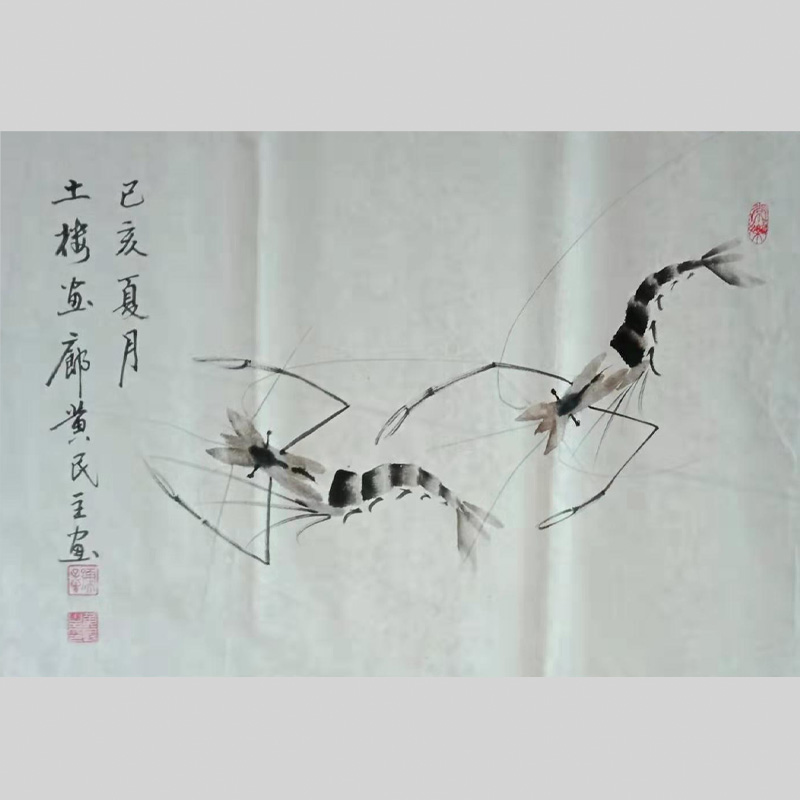 己亥夏月
土楼画廊黄民主画